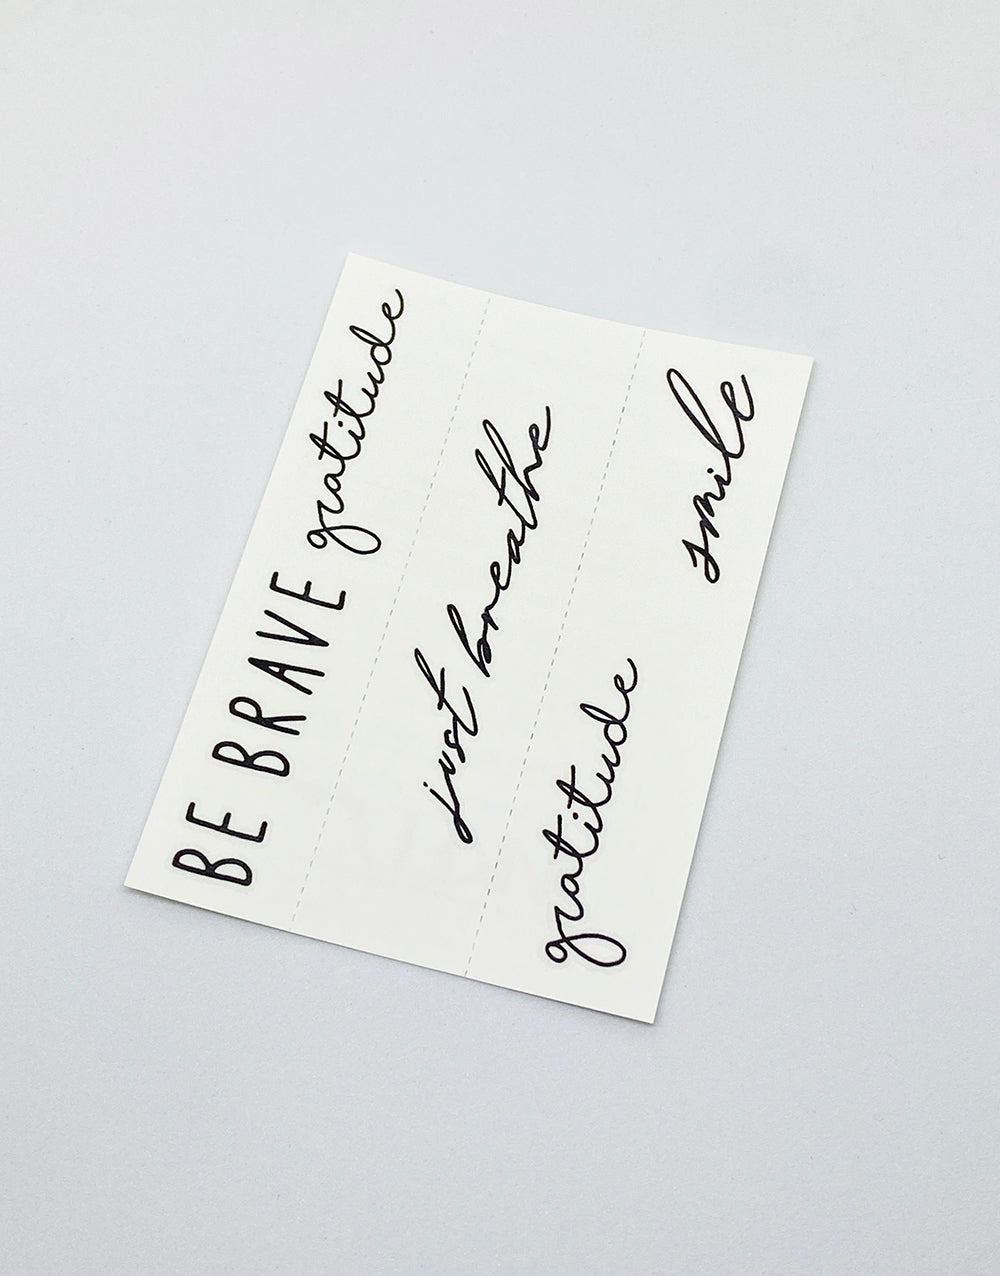 BE BRAVE gratitude
just breathe
gratitude smile